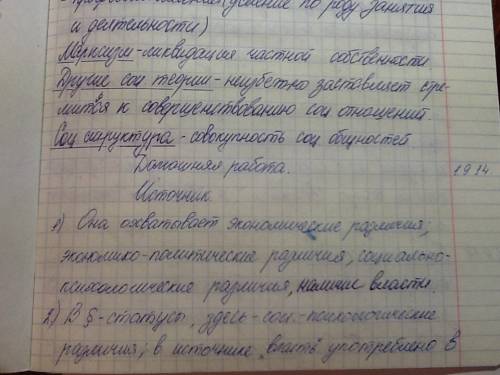 деление по роду занятия
и деятельности)
Марксизм-ликвидация частной собственности
Другие соц теории-неизбежно заставляет стре-
миться к совершенствованию соц отношений
Соц структура-совокупность соц общностей
Домашняя работа.
19.14
Источник.
1) Она охватывает экономические различия;
экономико-политические различия, социально-
психологические различия, наличие власти.
2) В §-статусы, здесь-соц.-психологические
различия; в источнике "власть" употреблено в